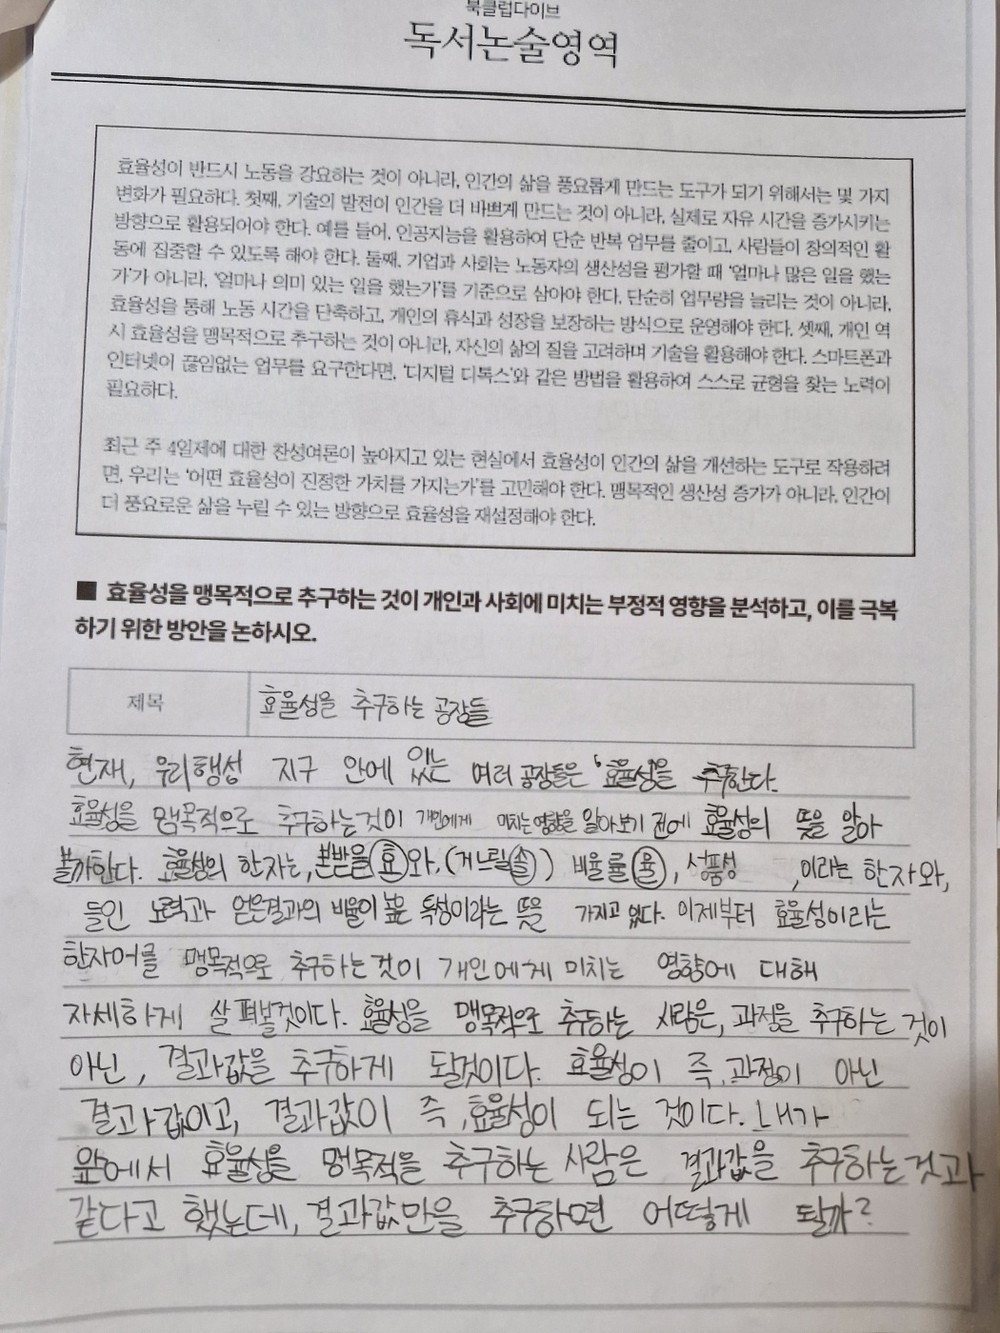 북클럽다이브
독서논술영역
효율성이 반드시 노동을 강요하는 것이 아니라, 인간의 삶을 풍요롭게 만드는 도구가 되기 위해서는 몇 가지
변화가 필요하다. 첫째, 기술의 발전이 인간을 더 바쁘게 만드는 것이 아니라, 실제로 자유 시간을 증가시키는
방향으로 활용되어야 한다. 예를 들어, 인공지능을 활용하여 단순 반복 업무를 줄이고, 사람들이 창의적인 활
동에 집중할 수 있도록 해야 한다. 둘째, 기업과 사회는 노동자의 생산성을 평가할 때 '얼마나 많은 일을 했는
가'가 아니라, '얼마나 의미 있는 일을 했는가'를 기준으로 삼아야 한다. 단순히 업무량을 늘리는 것이 아니라,
효율성을 통해 노동 시간을 단축하고, 개인의 휴식과 성장을 보장하는 방식으로 운영해야 한다. 셋째, 개인 역
시 효율성을 맹목적으로 추구하는 것이 아니라, 자신의 삶의 질을 고려하며 기술을 활용해야 한다. 스마트폰과
인터넷이 끊임없는 업무를 요구한다면, '디지털 디톡스'와 같은 방법을 활용하여 스스로 균형을 찾는 노력이
필요하다.
최근 주 4일제에 대한 찬성여론이 높아지고 있는 현실에서 효율성이 인간의 삶을 개선하는 도구로 작용하려
면, 우리는 '어떤 효율성이 진정한 가치를 가지는가'를 고민해야 한다. 맹목적인 생산성 증가가 아니라, 인간이
더 풍요로운 삶을 누릴 수 있는 방향으로 효율성을 재설정해야 한다.
■ 효율성을 맹목적으로 추구하는 것이 개인과 사회에 미치는 부정적 영향을 분석하고, 이를 극복
하기 위한 방안을 논하시오.
제목 효율성을 추구하는 공장들
현재, 우리행성 지구 안에 있는 여러 공장들은 '효율성'을 추구한다.
효율성을 맹목적으로 추구하는것이 개인에게 미치는영향을 알아보기 전에 효율성의 뜻을 알아
볼까한다. 효율성의 한자는, 본받을(효)와, (거느릴솔) 비율률(율), 성품성, 이라는 한자와,
들인 노력과 얻은결과의 비율이 높은 특성이라는 뜻을 가지고 있다. 이제부터 효율성이라는
한자어를 맹목적으로 추구하는것이 개인에게 미치는 영향에 대해
자세하게 살펴볼것이다. 효율성을 맹목적으로 추구하는 사람은, 과정을 추구하는 것이
아닌, 결과값을 추구하게 될것이다. 효율성이 즉, 과정이 아닌
결과값이고, 결과값이 즉, 효율성이 되는 것이다. 내가
앞에서 효율성을 맹목적을 추구하는 사람은 결과값을 추구하는것과
같다고 했는데, 결과값만을 추구하면 어떻게 될까?